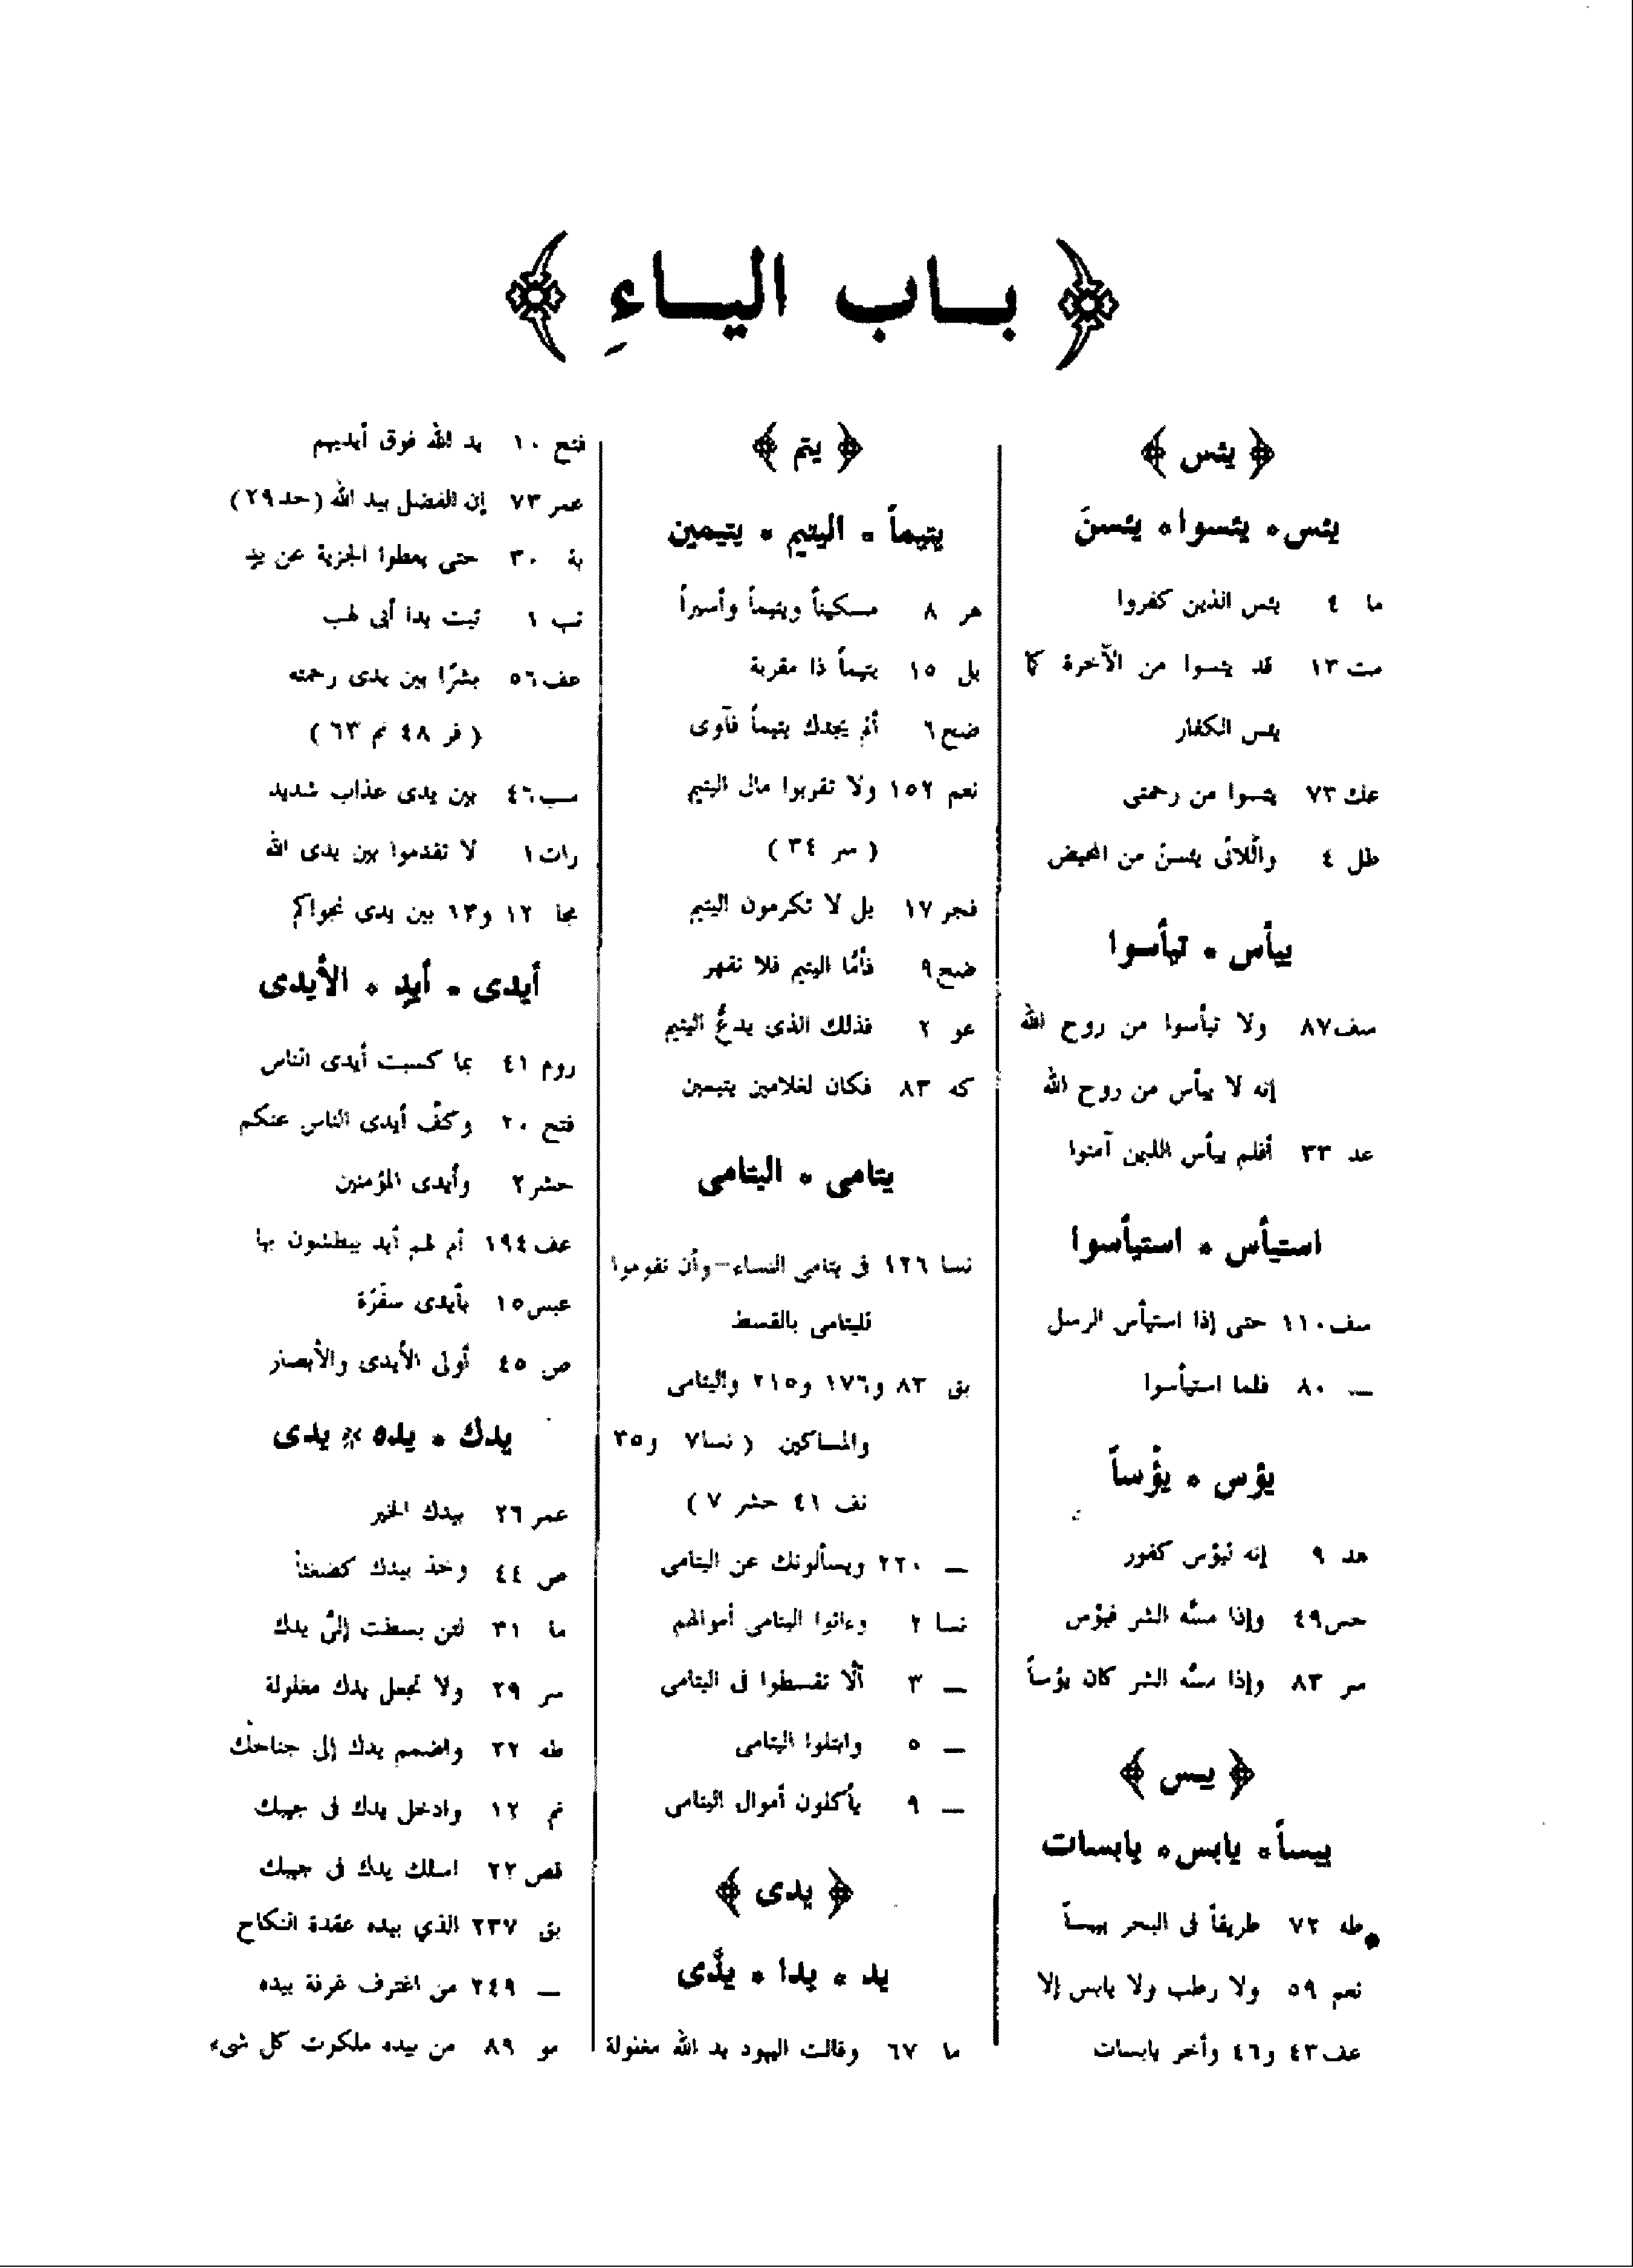 ﴿ بـاب اليـاءِ ﴾
﴿ يئس ﴾
يئس ٭ يئسوا ٭ يئسنَ
ما ٤ يئس الذين كفروا
مت ١٣ قد يئسوا من الآخرة كما
يئس الكفار
عك ٢٣ يئسوا من رحمتى
طل ٤ واللائى يئسن من المحيض
ييأس ٭ تيأسوا
سف ٨٧ ولا تيأسوا من روح الله
إنه لا ييأس من روح الله
عد ٣٣ أفلم ييأس الذين آمنوا
استيأس ٭ استيأسوا
سف ١١٠ حتى إذا استيأس الرسل
ــ ٨٠ فلما استيأسوا
يؤس ٭ يؤساً
هد ٩ إنه ليؤس كفور
حس ٤٩ وإذا مسَّه الشر فيؤس
سر ٨٣ وإذا مسَّه الشر كان يؤساً
﴿ يبس ﴾
يبساً ٭ يابس ٭ يابسات
طه ٧٢ طريقاً فى البحر يبساً
نعم ٥٩ ولا رطب ولا يابس إلا
سف ٤٣ و٤٦ وأخر يابسات
﴿ يتم ﴾
يتيماً ٭ اليتيم ٭ يتيمين
هر ٨ مسكيناً ويتيماً وأسيراً
بل ١٥ يتيماً ذا مقربة
ضح ٦ ألم يجدك يتيماً فآوى
نعم ١٥٢ ولا تقربوا مال اليتيم
( سر ٣٤ )
فجر ١٧ بل لا تكرمون اليتيم
ضح ٩ فأمَّا اليتيم فلا تقهر
عو ٢ فذلك الذى يدعُّ اليتيم
كه ٨٣ فكان لغلامين يتيمين
يتامى ٭ اليتامى
نسا ١٢٦ فى يتامى النساء–وأن تقوموا
لليتامى بالقسط
بق ٨٣ و١٧٦ و٢١٥ واليتامى
والمساكين ( نسا ٧ و٣٥
نف ٤١ حشر ٧ )
ــ ٢٢٠ ويسألونك عن اليتامى
نسا ٢ وءاتوا اليتامى أموالهم
ــ ٣ ألَّا تقسطوا فى اليتامى
ــ ٥ وابتلوا اليتامى
ــ ٩ يأكلون أموال اليتامى
﴿ يدى ﴾
يد ٭ يدا ٭ يدَى
ما ٦٧ وقالت اليهود يد الله مغلولة
فتح ١٠ يد الله فوق أيديهم
عمر ٧٣ إن الفضل بيد الله (حد ٢٩)
بة ٣٠ حتى يعطوا الجزية عن يدٍ
تب ١ تبت يدا أبى لهب
عف ٥٦ بشرًا بين يدى رحمته
( فر ٤٨ نم ٦٣ )
سب ٤٦ بين يدى عذاب شديد
رات ١ لا تقدموا بين يدى الله
مجا ١٢ و١٣ بين يدى نجواكم
أيدى ٭ أيدٍ ٭ الأيدى
روم ٤١ بما كسبت أيدى الناس
فتح ٢٠ وكفَّ أيدى الناس عنكم
حشر ٢ وأيدى المؤمنين
عف ١٩٤ أم لهم أيد يبطشون بها
عبس ١٥ بأيدى سفَرَة
ص ٤٥ أولى الأيدى والأبصار
يدك ٭ يده ٭ يدى
عمر ٢٦ بيدك الخير
ص ٤٤ وخذ بيدك ضغثاً
ما ٣١ لئن بسطت إلىَّ يدك
سر ٢٩ ولا تجعل يدك مغلولة
طه ٢٢ واضمم يدك إلى جناحك
نم ١٢ وادخل يدك فى جيبك
قص ٢٢ اسلك يدك فى جيبك
بق ٢٣٧ الذي بيده عقدة النكاح
ــ ٢٤٩ من اغترف غرفة بيده
مو ٨٩ من بيده ملكوت كل شىء